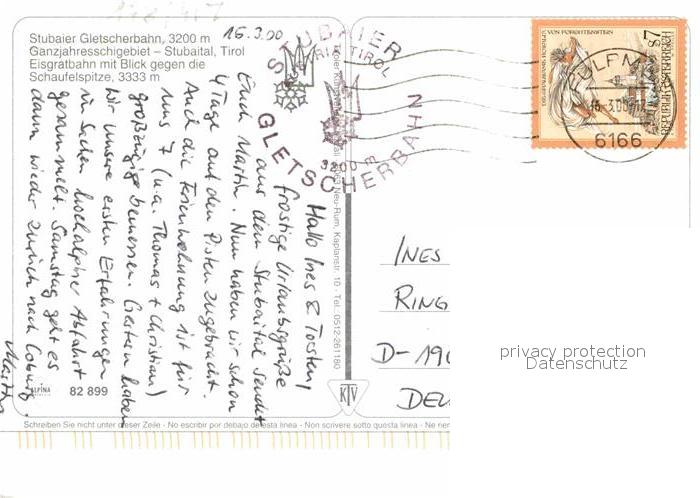 16.3.00
Stubaier Gletscherbahn, 3200 m
Ganzjahresschigebiet – Stubaital, Tirol
Eisgratbahn mit Blick gegen die
Schaufelspitze, 3333 m
STUBAIER
TIROL
3200 m
GLETSCHERBAHN
S 7
REPUBLIK ÖSTERREICH
16.3.00
6166
Hallo Ines & Torsten!
frostige Urlaubsgrüße
aus dem Stubaital sendet
Euch Martin. Nun haben wir schon
4 Tage auf den Pisten zugebracht.
Auch die Ferienwohnung ist für
uns 7 (u.a. Thomas + Christian)
großzügig bemessen. Gestern haben
wir unsere ersten Erfahrungen
in Sachen hochalpine Abfahrt
gesammelt. Samstag geht es
dann wieder zurück nach Coburg.
Martin
Neu-Rum, Kaplanstr. 10 · Tel. 0512-261180
INES
RING
D-190
DEU
privacy protection
Datenschutz
ALPINA
82 899
KTV
Schreiben Sie nicht unter dieser Zeile - No escribir por debajo de esta linea - Non scrivere sotto questa linea - Ne